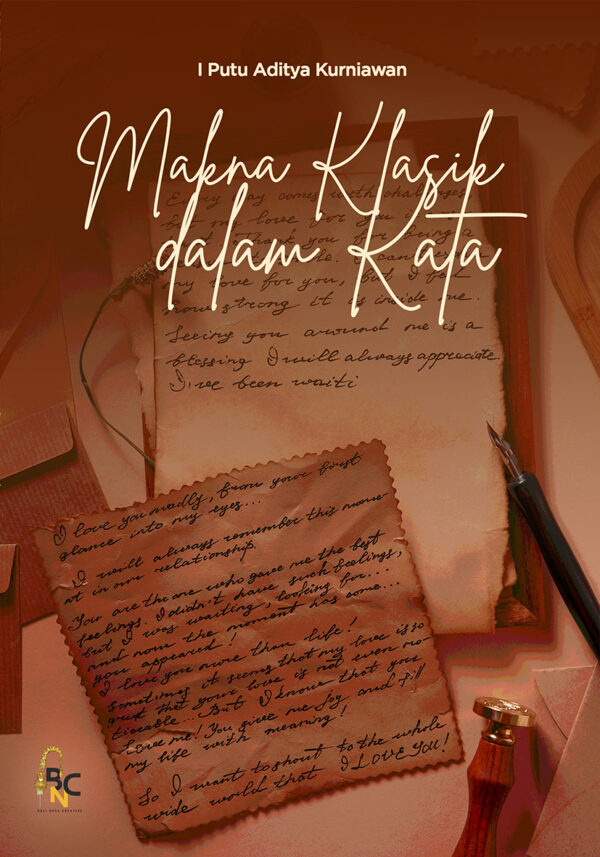 I Putu Aditya Kurniawan
Makna Klasik
dalam Kata
Every day comes with challenges
but my love for you
my love for you, but I feel
how strong it is inside me.
Seeing you around me is a
blessing I will always appreciate
I've been waiti
I love you madly, from your first
glance into my eyes...
I will always remember this mome
nt in our relationship.
You are the one who gave me the best
feelings. I didn't have such feelings,
but I was waiting, looking for...
and now the moment has come...
you appeared!
I love you more than life!
Sometimes it seems that my love is so
great that your love is not even no
ticeable... But I know that you
love me! You give me joy and fill
my life with meaning!
So I want to shout to the whole
wide world that I LOVE YOU!
BNC
BALI NOVA CREATIVE